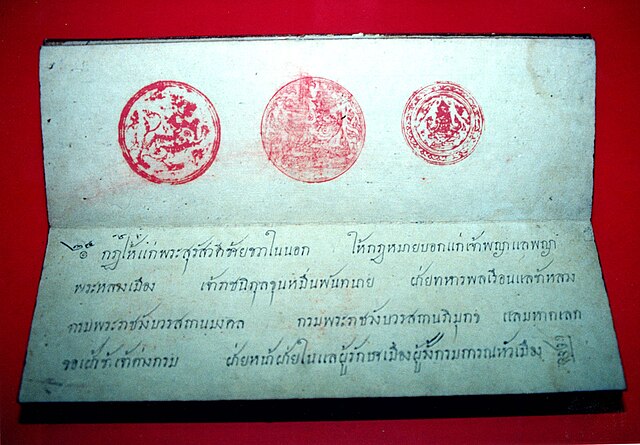 กฎให้แก่พระสุรัสวดีซ้ายขวาในนอก ให้กฎหมายบอกแก่เจ้าพญาแลพญา
พระหลวงเมือง เจ้าราชนิกุลขุนหมื่นพันทนาย ฝ่ายทหารพลเรือนแลข้าหลวง
กรมพระราชวังบวรสถานมงคล กรมพระราชวังบวรสถานภิมุกข แลมหาดเลก
ขอเฝ้าข้าเจ้าต่างกรม ฝ่ายหน้าฝ่ายในแลผู้รักษาเมืองผู้รั้งกรมการณหัวเมือง